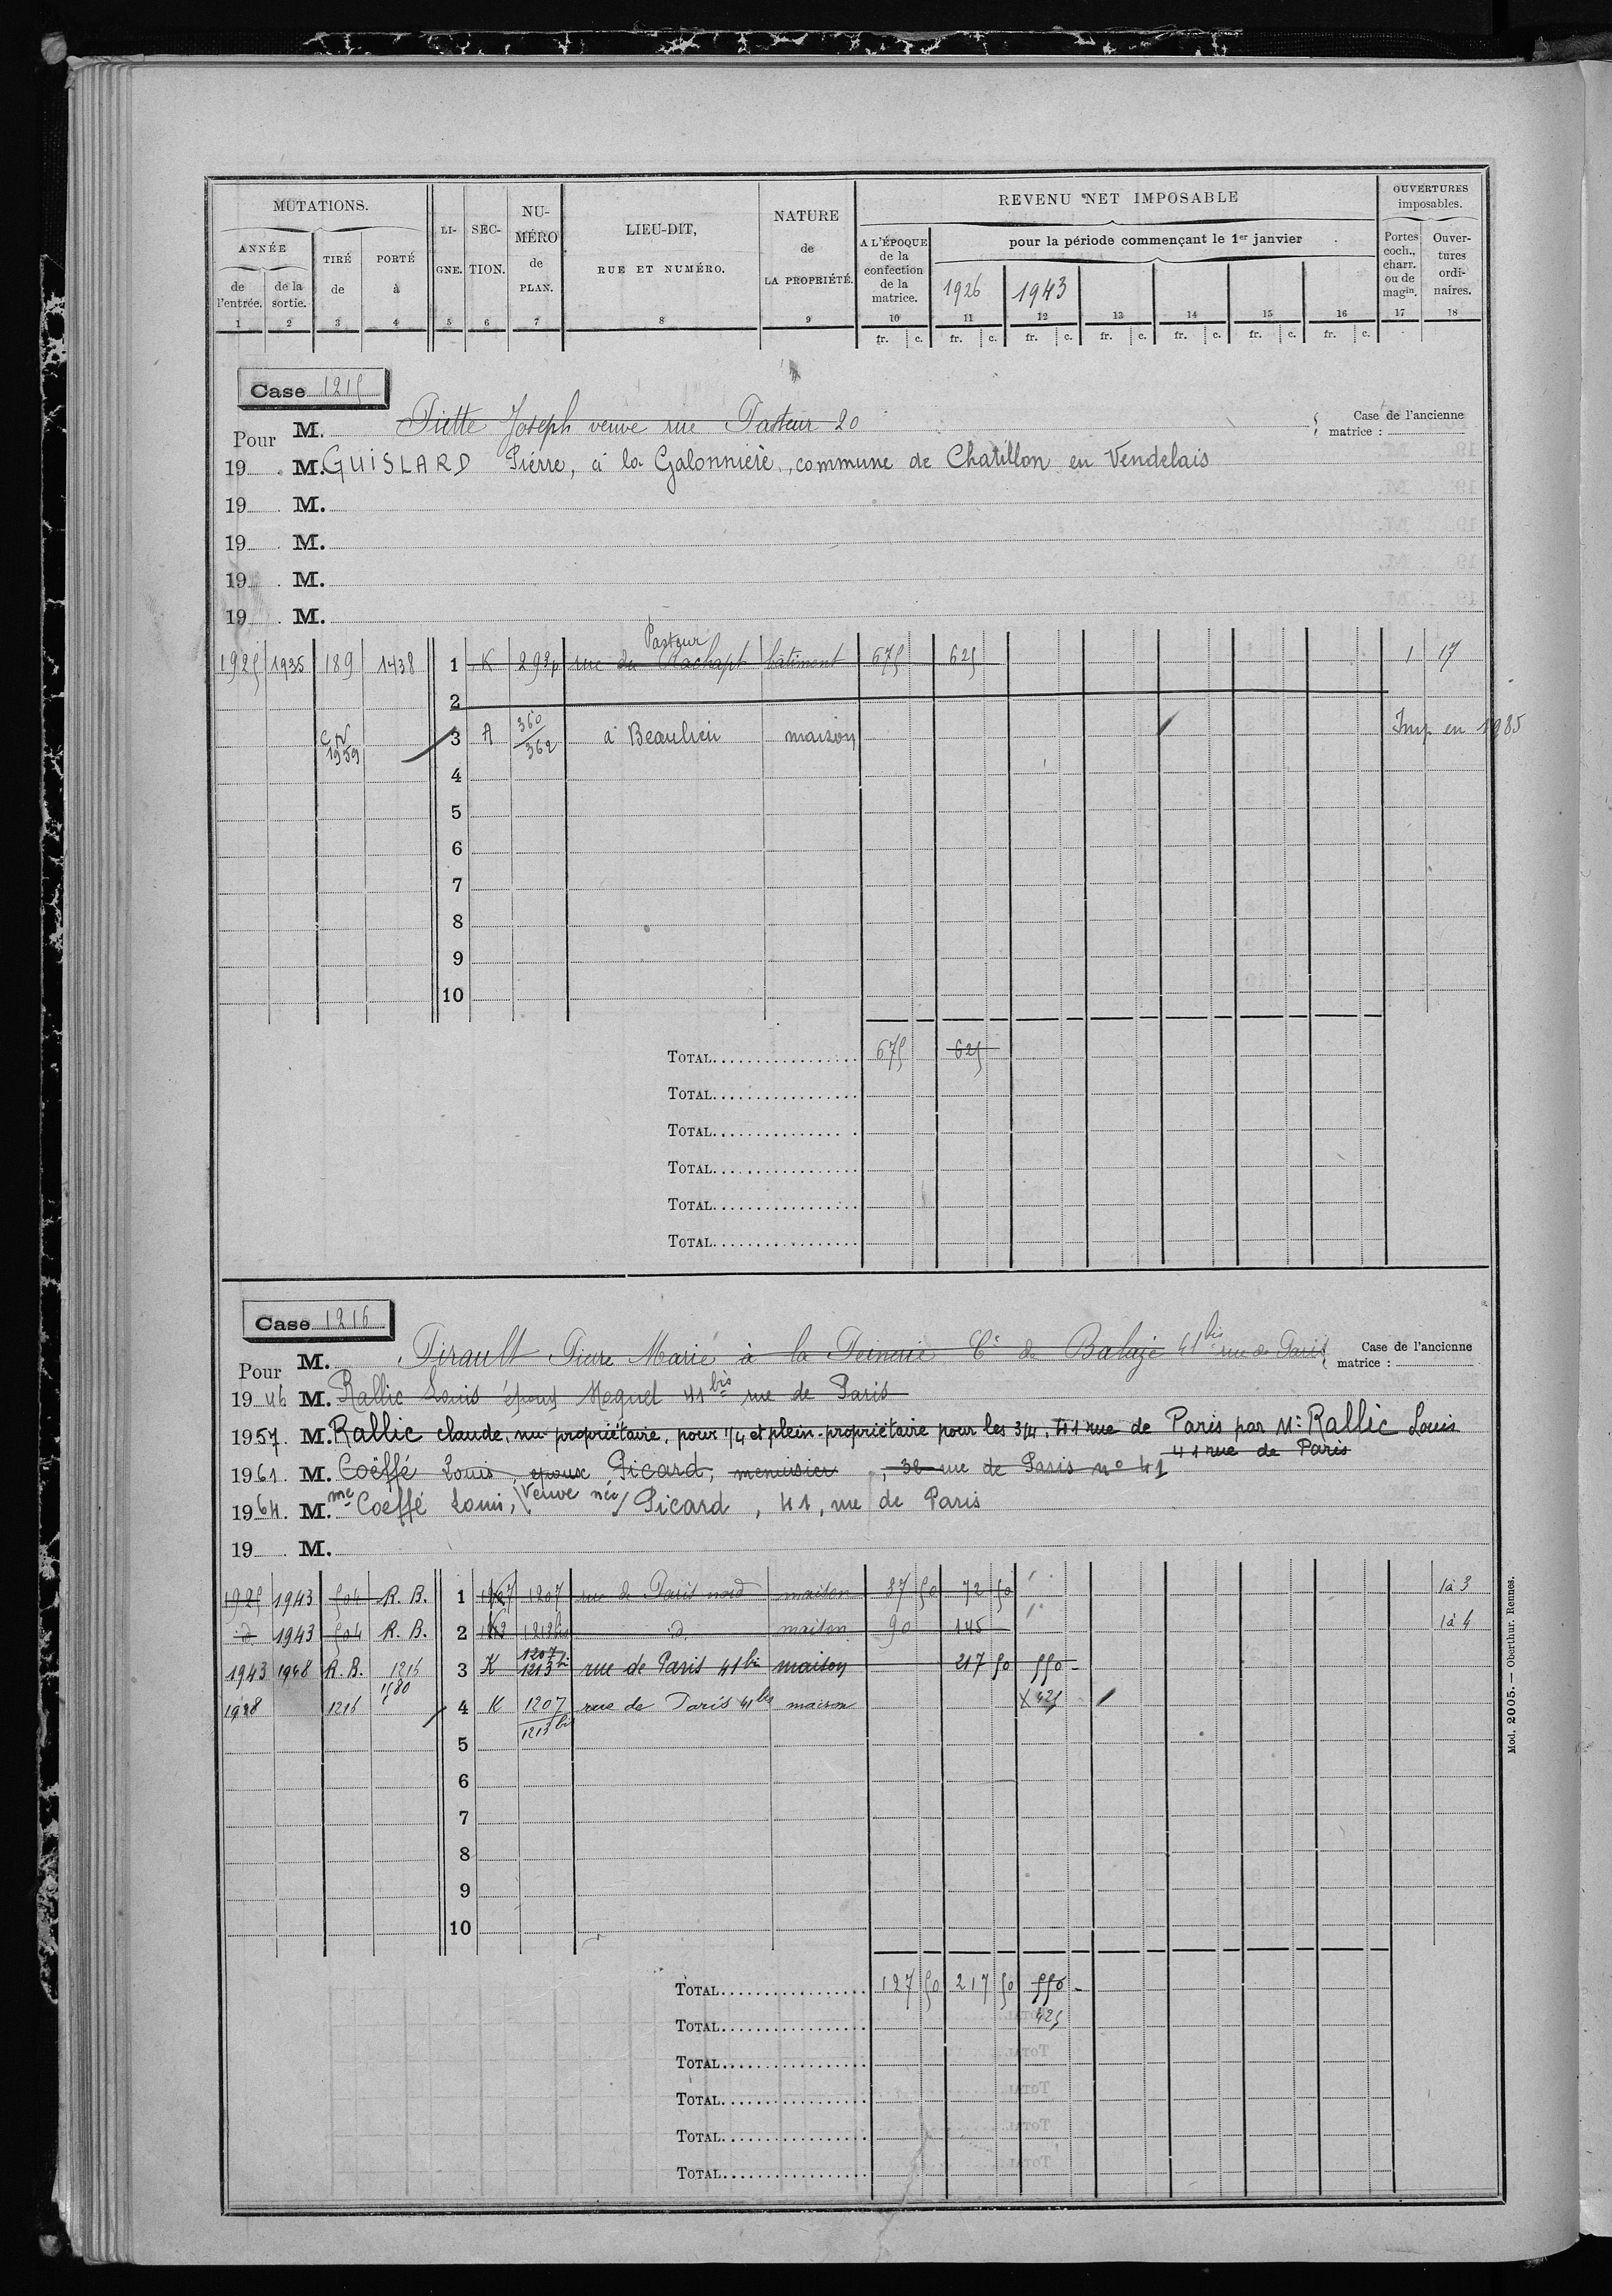 MUTATIONS.
ANNÉE
de l'entrée.
de la sortie.
TIRÉ de
PORTÉ à
LIGNE.
SECTION.
NUMÉRO de PLAN.
LIEU-DIT,
RUE ET NUMÉRO.
NATURE de LA PROPRIÉTÉ.
REVENU NET IMPOSABLE
A L'ÉPOQUE de la confection de la matrice.
pour la période commençant le 1er janvier
1926 1943
OUVERTURES imposables.
Portes coch., charr. ou de magin.
Ouvertures ordinaires.
1 2 3 4 5 6 7 8 9 10 11 12 13 14 15 16 17 18
fr. c. fr. c. fr. c. fr. c. fr. c. fr. c. fr. c.
Case 1215
Pour M. Piette Joseph veuve rue Pasteur 20
Case de l'ancienne matrice :
19 M. GUISLARD Pierre, à la Galonnière, commune de Chatillon en Vendelais
19 M.
19 M.
19 M.
19 M.
Pasteur
1925 1935 189 1438 1 K 293p rue du Rachapt bâtiment 675 625 1 17
2
C.N 1959 3 A 360/362 à Beaulieu maison Imp. en 1985
4
5
6
7
8
9
10
TOTAL 675 625
TOTAL
TOTAL
TOTAL
TOTAL
TOTAL
Case 1216
Pour M. Pirault Pierre Marie à la Peinerie Cne de Balazé 41bis rue de Paris
Case de l'ancienne matrice :
1946 M. Rallic Louis époux Moquet 41bis rue de Paris
1957. M. Rallic claude, nu propriétaire, pour 1/4 et plein-propriétaire pour les 3/4, 41 rue de Paris par Mr Rallic Louis
41 rue de Paris
1961. M. Coëffé Louis, epoux Picard, menuisier, 38 rue de Paris n° 41
1964. Mme Coeffé Louis, Veuve née Picard, 41, rue de Paris
19 M.
1925 1943 504 R. B. 1 1207 1207 rue de Paris nord maison 37 50 72 50 1à 3
d 1943 504 R. B. 2 1213bis d maison 90 145 1à 4
1943 1948 R. B. 1216 3 K 1207 1213bis rue de Paris 41bis maison 217 50 550 -
1580
1948 1216 4 K 1207/1213bis rue de Paris 41bis maison x 425
5
6
7
8
9
10
TOTAL 127 50 217 50 550 -
TOTAL 425
TOTAL
TOTAL
TOTAL
TOTAL
Mod. 2005. — Oberthur. Rennes.